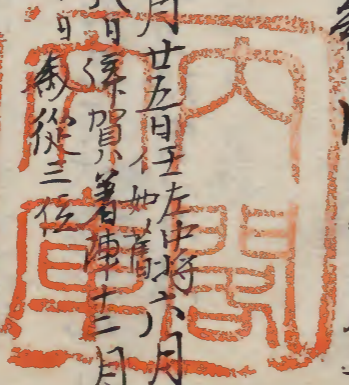 月廿五日任左中将六月
如舊
八日拝賀着陣十二月
日叙従三位
内閣
文庫